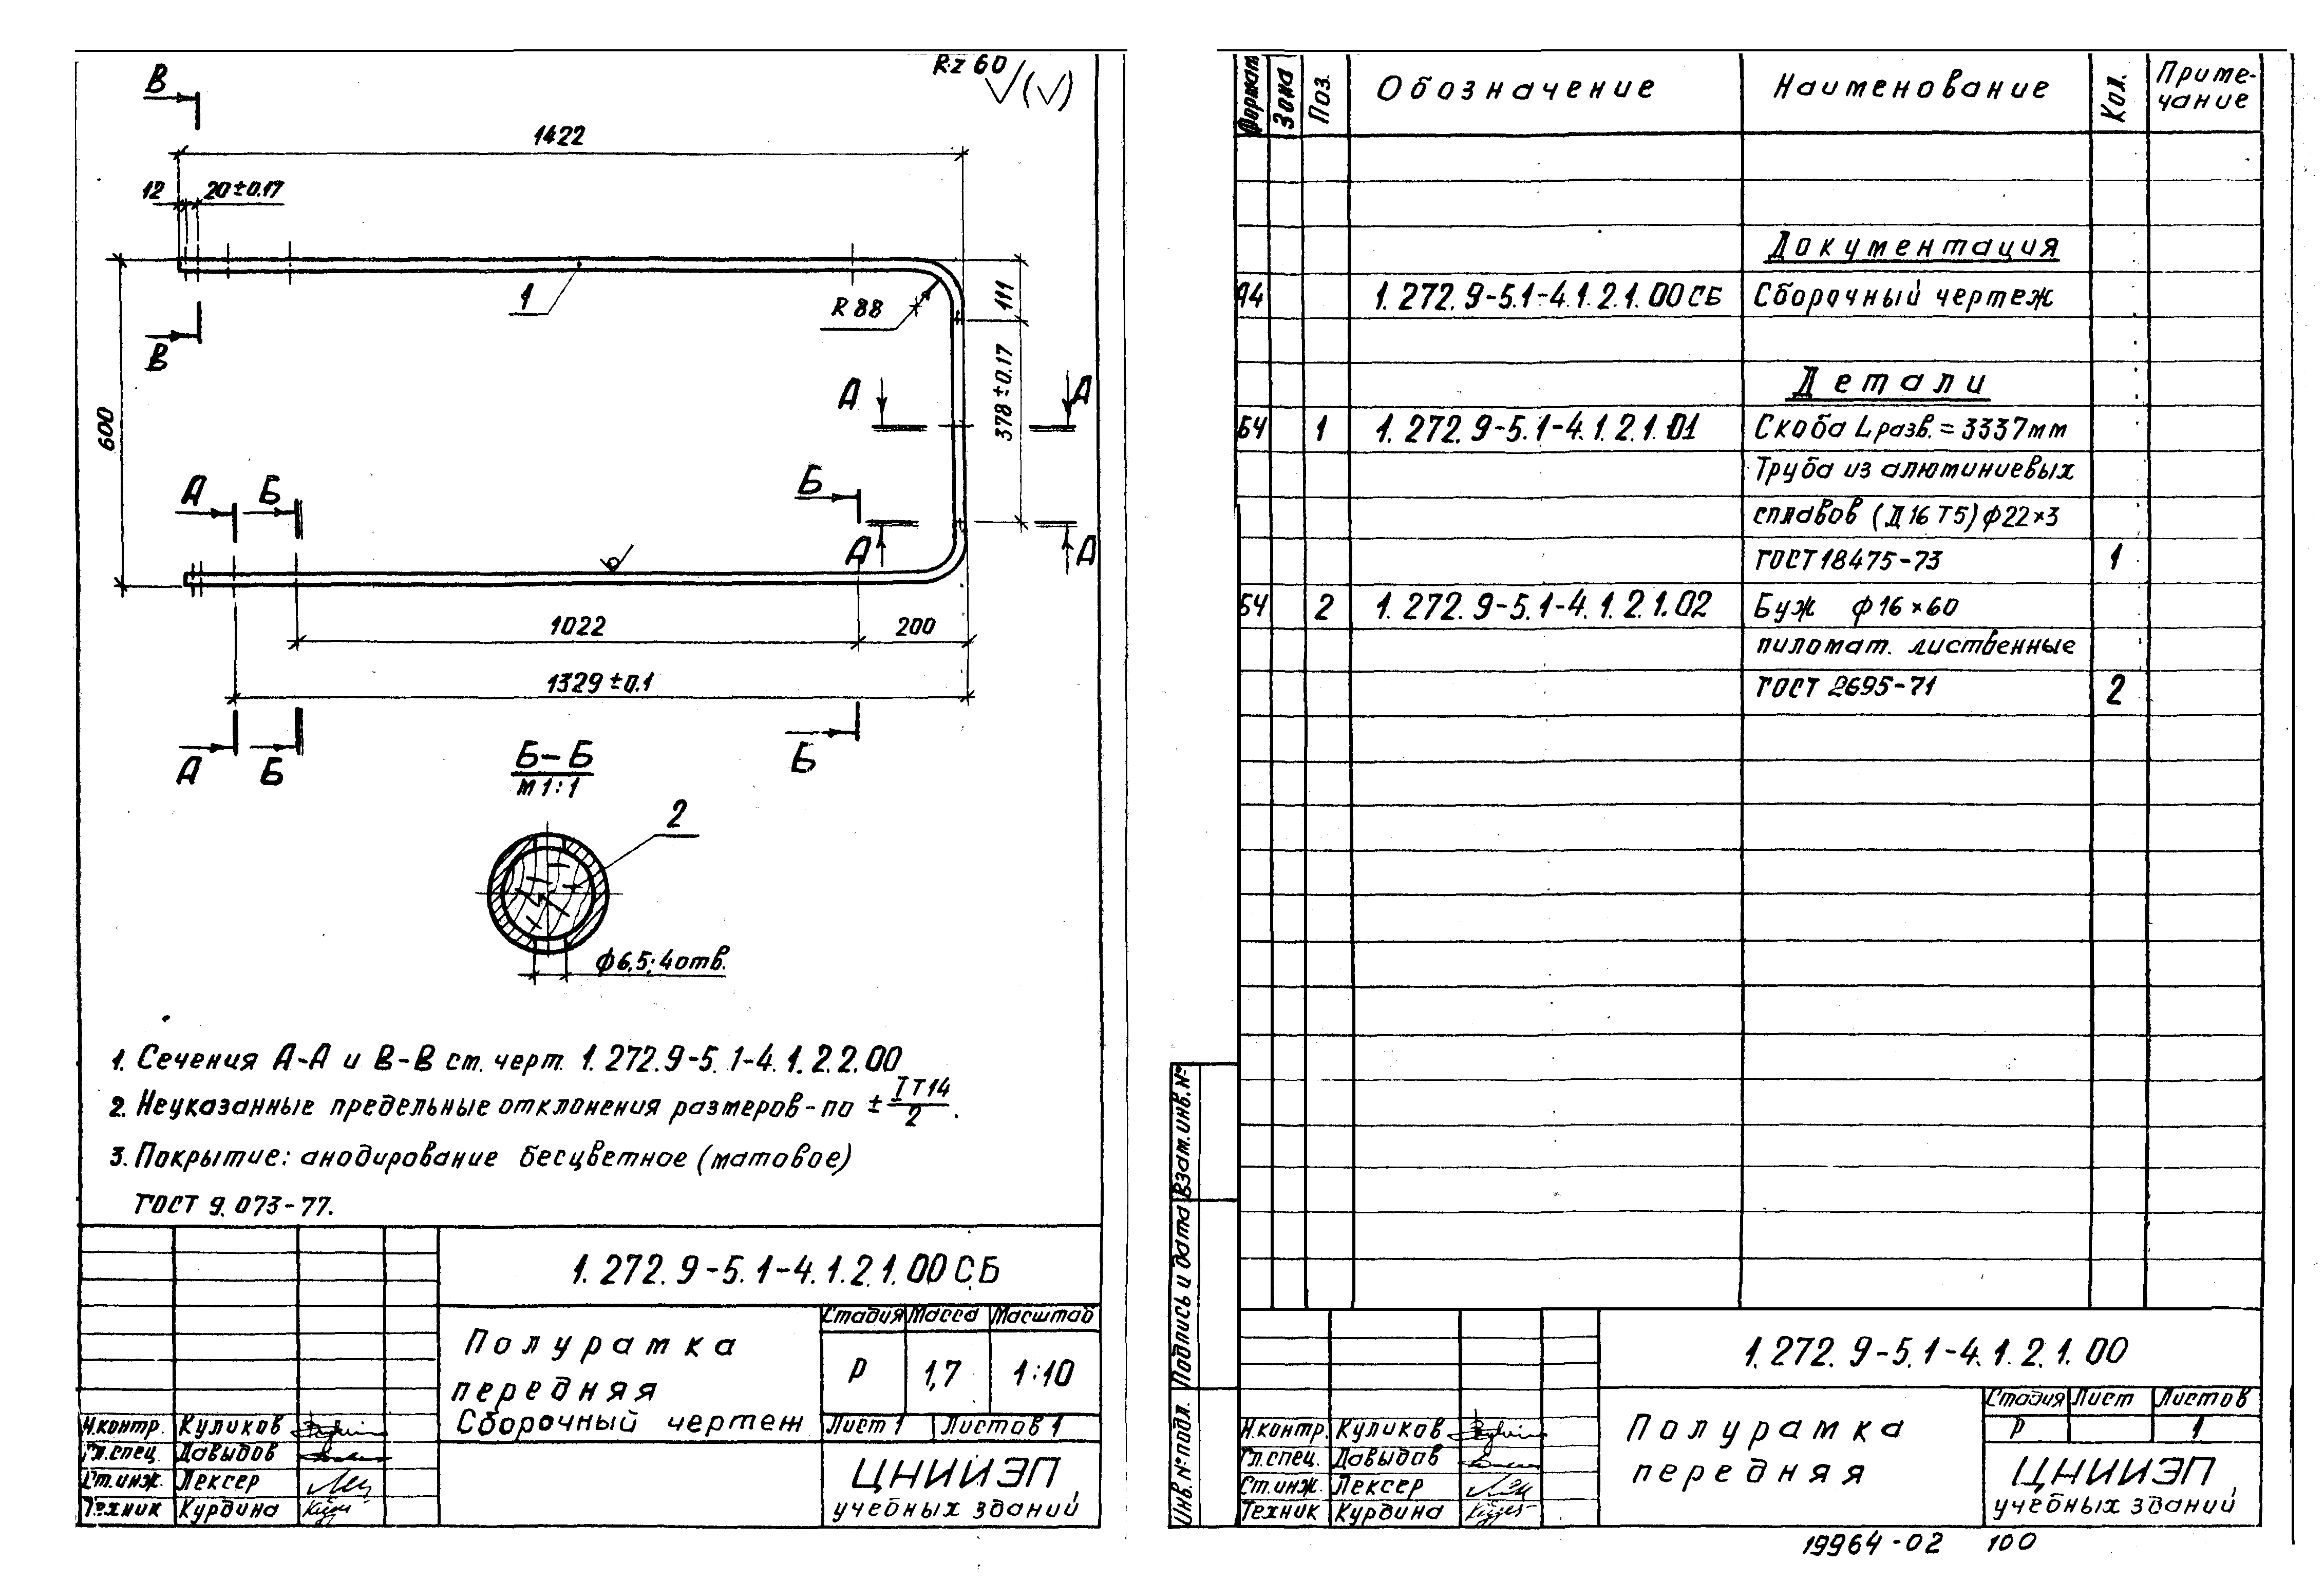 Rz 60
В
1422
12
20±0.17
1
R 88
111
В
600
378±0.17
А
А
А
Б
Б
А
А
1022
200
1329±0.1
А
Б
Б
Б-Б
М 1:1
2
ф6,5; 4отв.
1. Сечения А-А и В-В см. черт. 1.272.9-5.1-4.1.2.2.00
2. Неуказанные предельные отклонения размеров-по ± IT14/2.
3. Покрытие: анодирование бесцветное (матовое)
ГОСТ 9.073-77.
1.272.9-5.1-4.1.2.1.00 СБ
Полурамка
передняя
Сборочный чертеж
Стадия Масса Масштаб
Р 1,7 1:10
Лист 1 Листов 1
Н.контр. Куликов
Гл.спец. Давыдов
Ст.инж. Лексер
Техник Курдина
ЦНИИЭП
учебных зданий
Формат Зона Поз. Обозначение Наименование Кол. Приме-
чание
Документация
А4 1.272.9-5.1-4.1.2.1.00 СБ Сборочный чертеж
Детали
БЧ 1 1.272.9-5.1-4.1.2.1.01 Скоба Lразв.=3337мм
Труба из алюминиевых
сплавов (Д16Т5) ф22×3
ГОСТ 18475-73 1
БЧ 2 1.272.9-5.1-4.1.2.1.02 Буж ф16×60
пиломат. лиственные
ГОСТ 2695-71 2
Взам. инв. №
Подпись и дата
Инв. № подл.
1.272.9-5.1-4.1.2.1.00
Полурамка
передняя
Стадия Лист Листов
Р 1
Н.контр. Куликов
Гл.спец. Давыдов
Ст.инж. Лексер
Техник Курдина
ЦНИИЭП
учебных зданий
19964-02 100